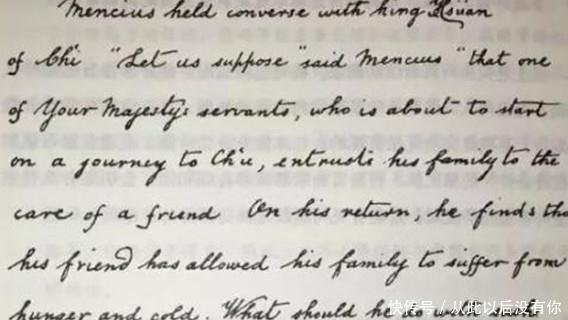 Mencius held converse with king Hsüan
of Chi "Let us suppose" said Mencius "that one
of Your Majesty's servants, who is about to start
on a journey to Chu, entrusts his family to the
care of a friend On his return, he finds tha
his friend has allowed his family to suffer from
hunger and cold. What should he do with
快传号 / 从此以后没有你